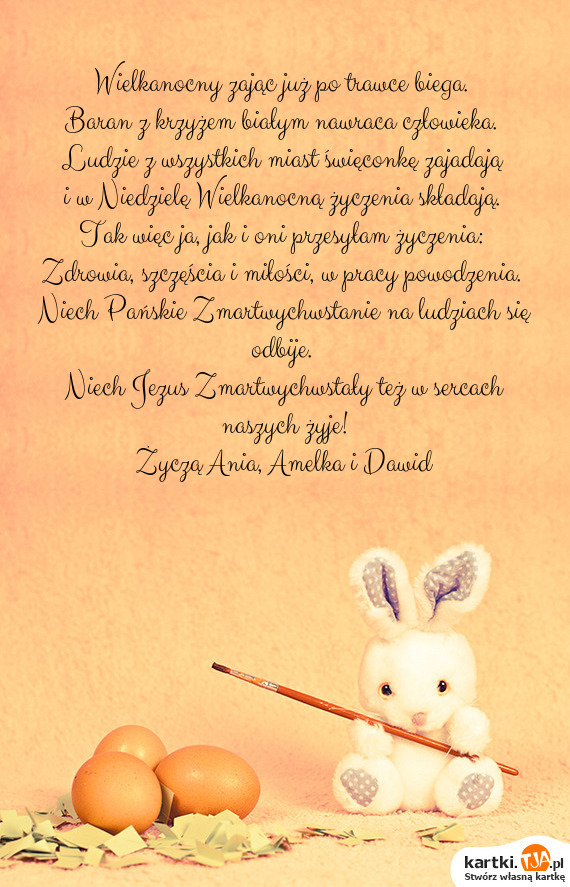 Wielkanocny zając już po trawce biega.
Baran z krzyżem białym nawraca człowieka.
Ludzie z wszystkich miast święconkę zajadają
i w Niedzielę Wielkanocną życzenia składają.
Tak więc ja, jak i oni przesyłam życzenia:
Zdrowia, szczęścia i miłości, w pracy powodzenia.
Niech Pańskie Zmartwychwstanie na ludziach się
odbije.
Niech Jezus Zmartwychwstały też w sercach
naszych żyje!
Życzą Ania, Amelka i Dawid
kartki.TJA.pl
Stwórz własną kartkę